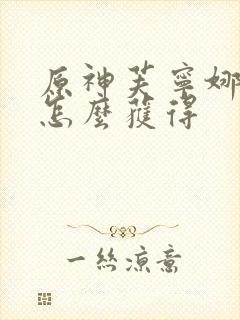 原神芙寧娜
怎麼獲得
一丝凉意